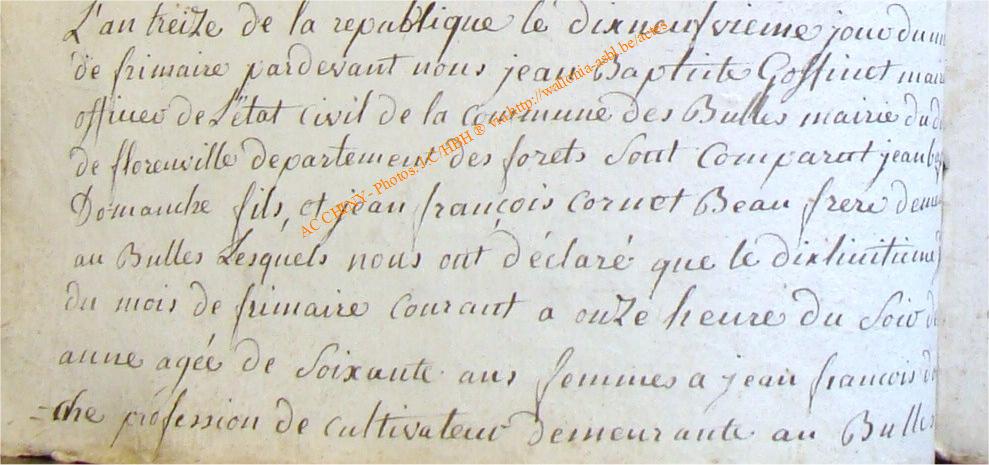 L'an treize de la republique le dixneufvieme jour du
de frimaire pardevant nous jean Baptiste Goffinet maire
officier de L'état civil de la commune des Bulles mairie du
de florenville departement des forets sont comparut jean
Domanche fils, et jean françois cornet Beau frere
au Bulles Lesquels nous ont déclaré que le dixhuitieme
du mois de frimaire courant a onze heure du soir
anne agée de soixante ans femmes a jean francois
=che profession de cultivateur demeurante au Bulles
ACCHPXY - Photos: LC/HBH ® via http://wallonia-asbl.be/actes